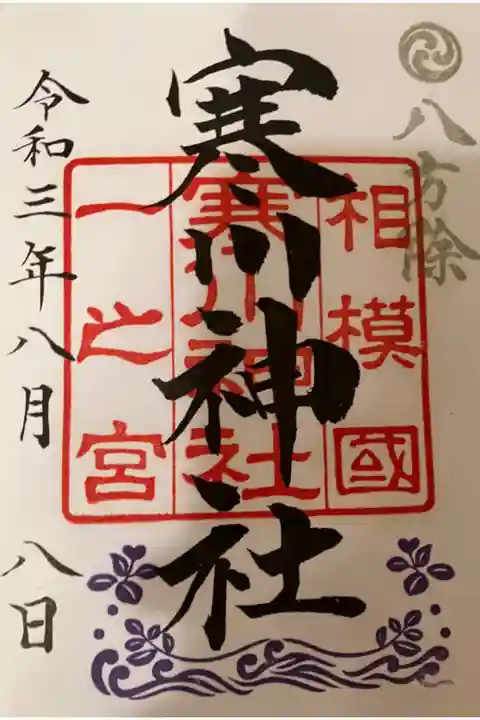 八方除
相模國
寒川神社
一之宮
寒川神社
令和三年八月八日